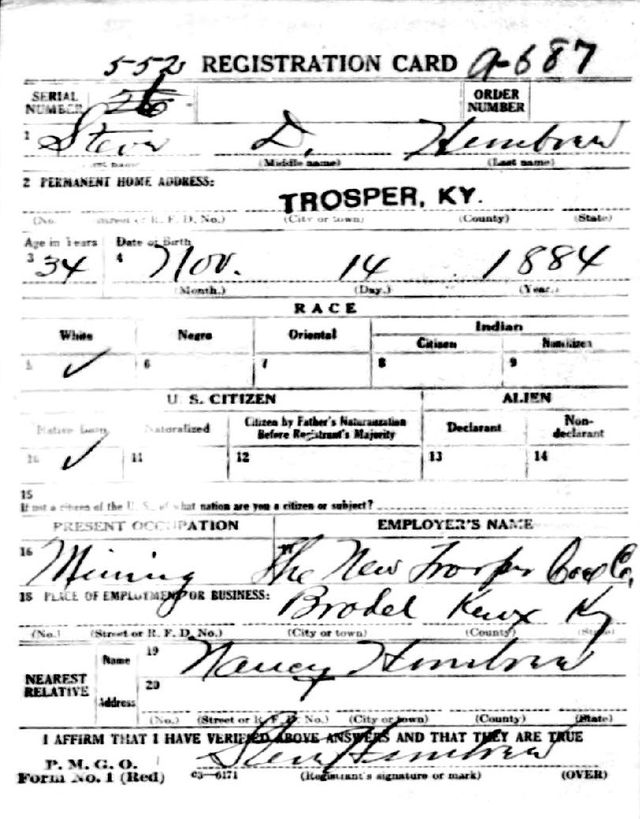 552 REGISTRATION CARD A-687
SERIAL NUMBER 26 ORDER NUMBER
1 Steve D. Hembree
(Middle name) (Last name)
2 PERMANENT HOME ADDRESS:
TROSPER, KY.
(No. Street or R. F. D. No.) (City or town) (County) (State)
Age in Years Date of Birth
3 34 4 Nov. 14 1884
(Month.) (Day.) (Year.)
RACE
White Negro Oriental Indian
Citizen Noncitizen
5 ✓ 6 7 8 9
U. S. CITIZEN ALIEN
Native Born Naturalized Citizen by Father's Naturalization Before Registrant's Majority Declarant Non-declarant
10 ✓ 11 12 13 14
15
If not a citizen of the U. S., of what nation are you a citizen or subject?
PRESENT OCCUPATION EMPLOYER'S NAME
16 Mining 17 The New Trosper Coal Co.
18 PLACE OF EMPLOYMENT OR BUSINESS:
Knox Ky
(No.) (Street or R. F. D. No.) (City or town) (County) (State)
NEAREST RELATIVE Name 19 Nancy Hembree
Address 20
(No.) (Street or R. F. D. No.) (City or town) (County) (State)
I AFFIRM THAT I HAVE VERIFIED ABOVE ANSWERS AND THAT THEY ARE TRUE
P. M. G. O.
Form No. 1 (Red) 03—6171 Steve Hembree
(Registrant's signature or mark) (OVER)